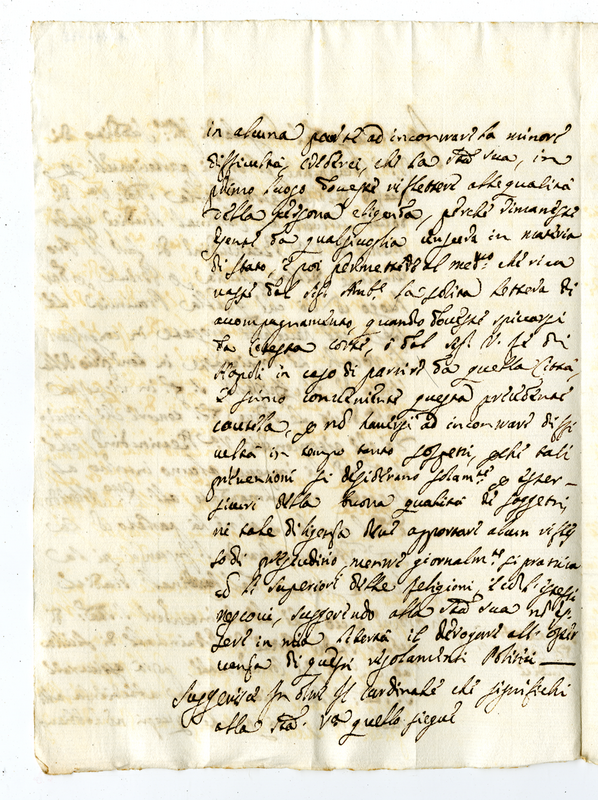 in alcuna parte ad incontrare la minore
difficultà, che la Stà sua, in
primo luogo dovesse riflettere alle qualità
della persona eligenda, perché rimanesse
esente da qualsivoglia in materia
di stato, e poi permettere al med.mo che rica
vasse dal Sig. Amb.e la solita lettera di
accompagnamento, quando dovesse spiccarsi
da cotesta corte, ò dal Sig. V. Rè di
Napoli in caso di partire da quella Città,
e stimo conveniente questa precedente
cautela, p nò haversi ad incontrare diffi
cultà in tempo tanto sospetti, pche tali
prevenzioni si desiderano solam.te p
della buona qualità de soggetti,
ne tale diligenza deve apportare alcun rifles
so di pregiudizio, mentre giornalm.te si pratica
cò li superiori delle religioni, è cò l'istessi
vescovi, suggerendo alla Stà sua nò es
sere in mia libertà il derogare all'osser
vanza di questi regolamenti Politici —
Suggerisca In oltre il Cardinale che significhi
alla Stà. Va quello siegue